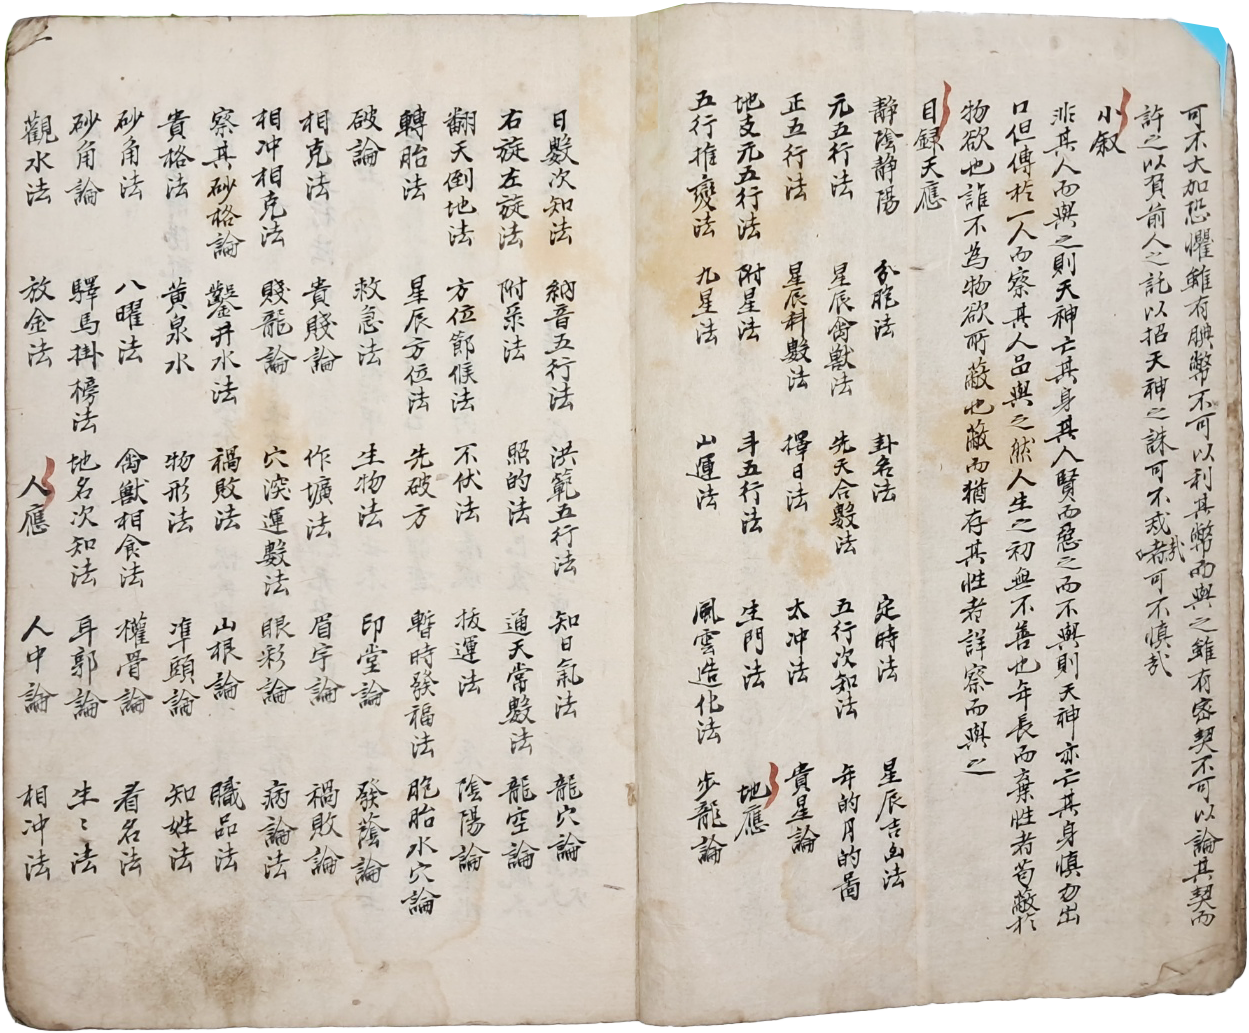 可不大加恐懼雖有腆幣不可以利其幣而與之雖有密契不可以論其契而
許之以負前人之託以招天神之誅可不戒者哉可不慎哉
小叙
非其人而與之則天神亡其身其人賢而惡之而不與則天神亦亡其身慎勿出
口但傳於一人而察其人品與之然人生之初無不善也年長而棄性者苟蔽於
物欲也誰不為物欲所蔽也蔽而猶存其性者詳察而與之
目録天應
靜陰靜陽 分胞法 卦名法 定時法 星辰吉凶法
元五行法 星辰禽獸法 先天合數法 五行次知法 年的月的啚
正五行法 星辰科數法 擇日法 太冲法 貴星論
地支元五行法 附星法 斗五行法 生門法 地應
五行推變法 九星法 山運法 風雲造化法 步龍論
日數次知法 納音五行法 洪範五行法 知日氣法 龍穴論
右旋左旋法 附采法 照的法 通天常數法 龍空論
翻天倒地法 方位節候法 不伏法 拔運法 陰陽論
轉胎法 星辰方位法 先破方 暫時發福法 胞胎水穴論
破論 救急法 生物法 印堂論 發蔭論
相克法 貴賤論 作壙法 眉宇論 禍敗論
相冲相克法 賤龍論 穴深運數法 眼彩論 病論法
察其砂格論 鑿井水法 禍敗法 山根論 職品法
貴格法 黃泉水 物形法 準頭論 知姓法
砂角法 八曜法 禽獸相食法 權骨論 看名法
砂角論 驛馬掛榜法 地名次知法 耳郭論 生〻法
觀水法 放金法 人應 人中論 相冲法